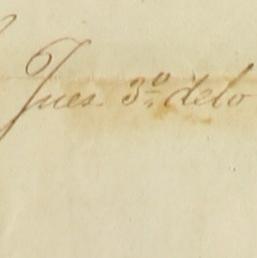 Jues 3º delo